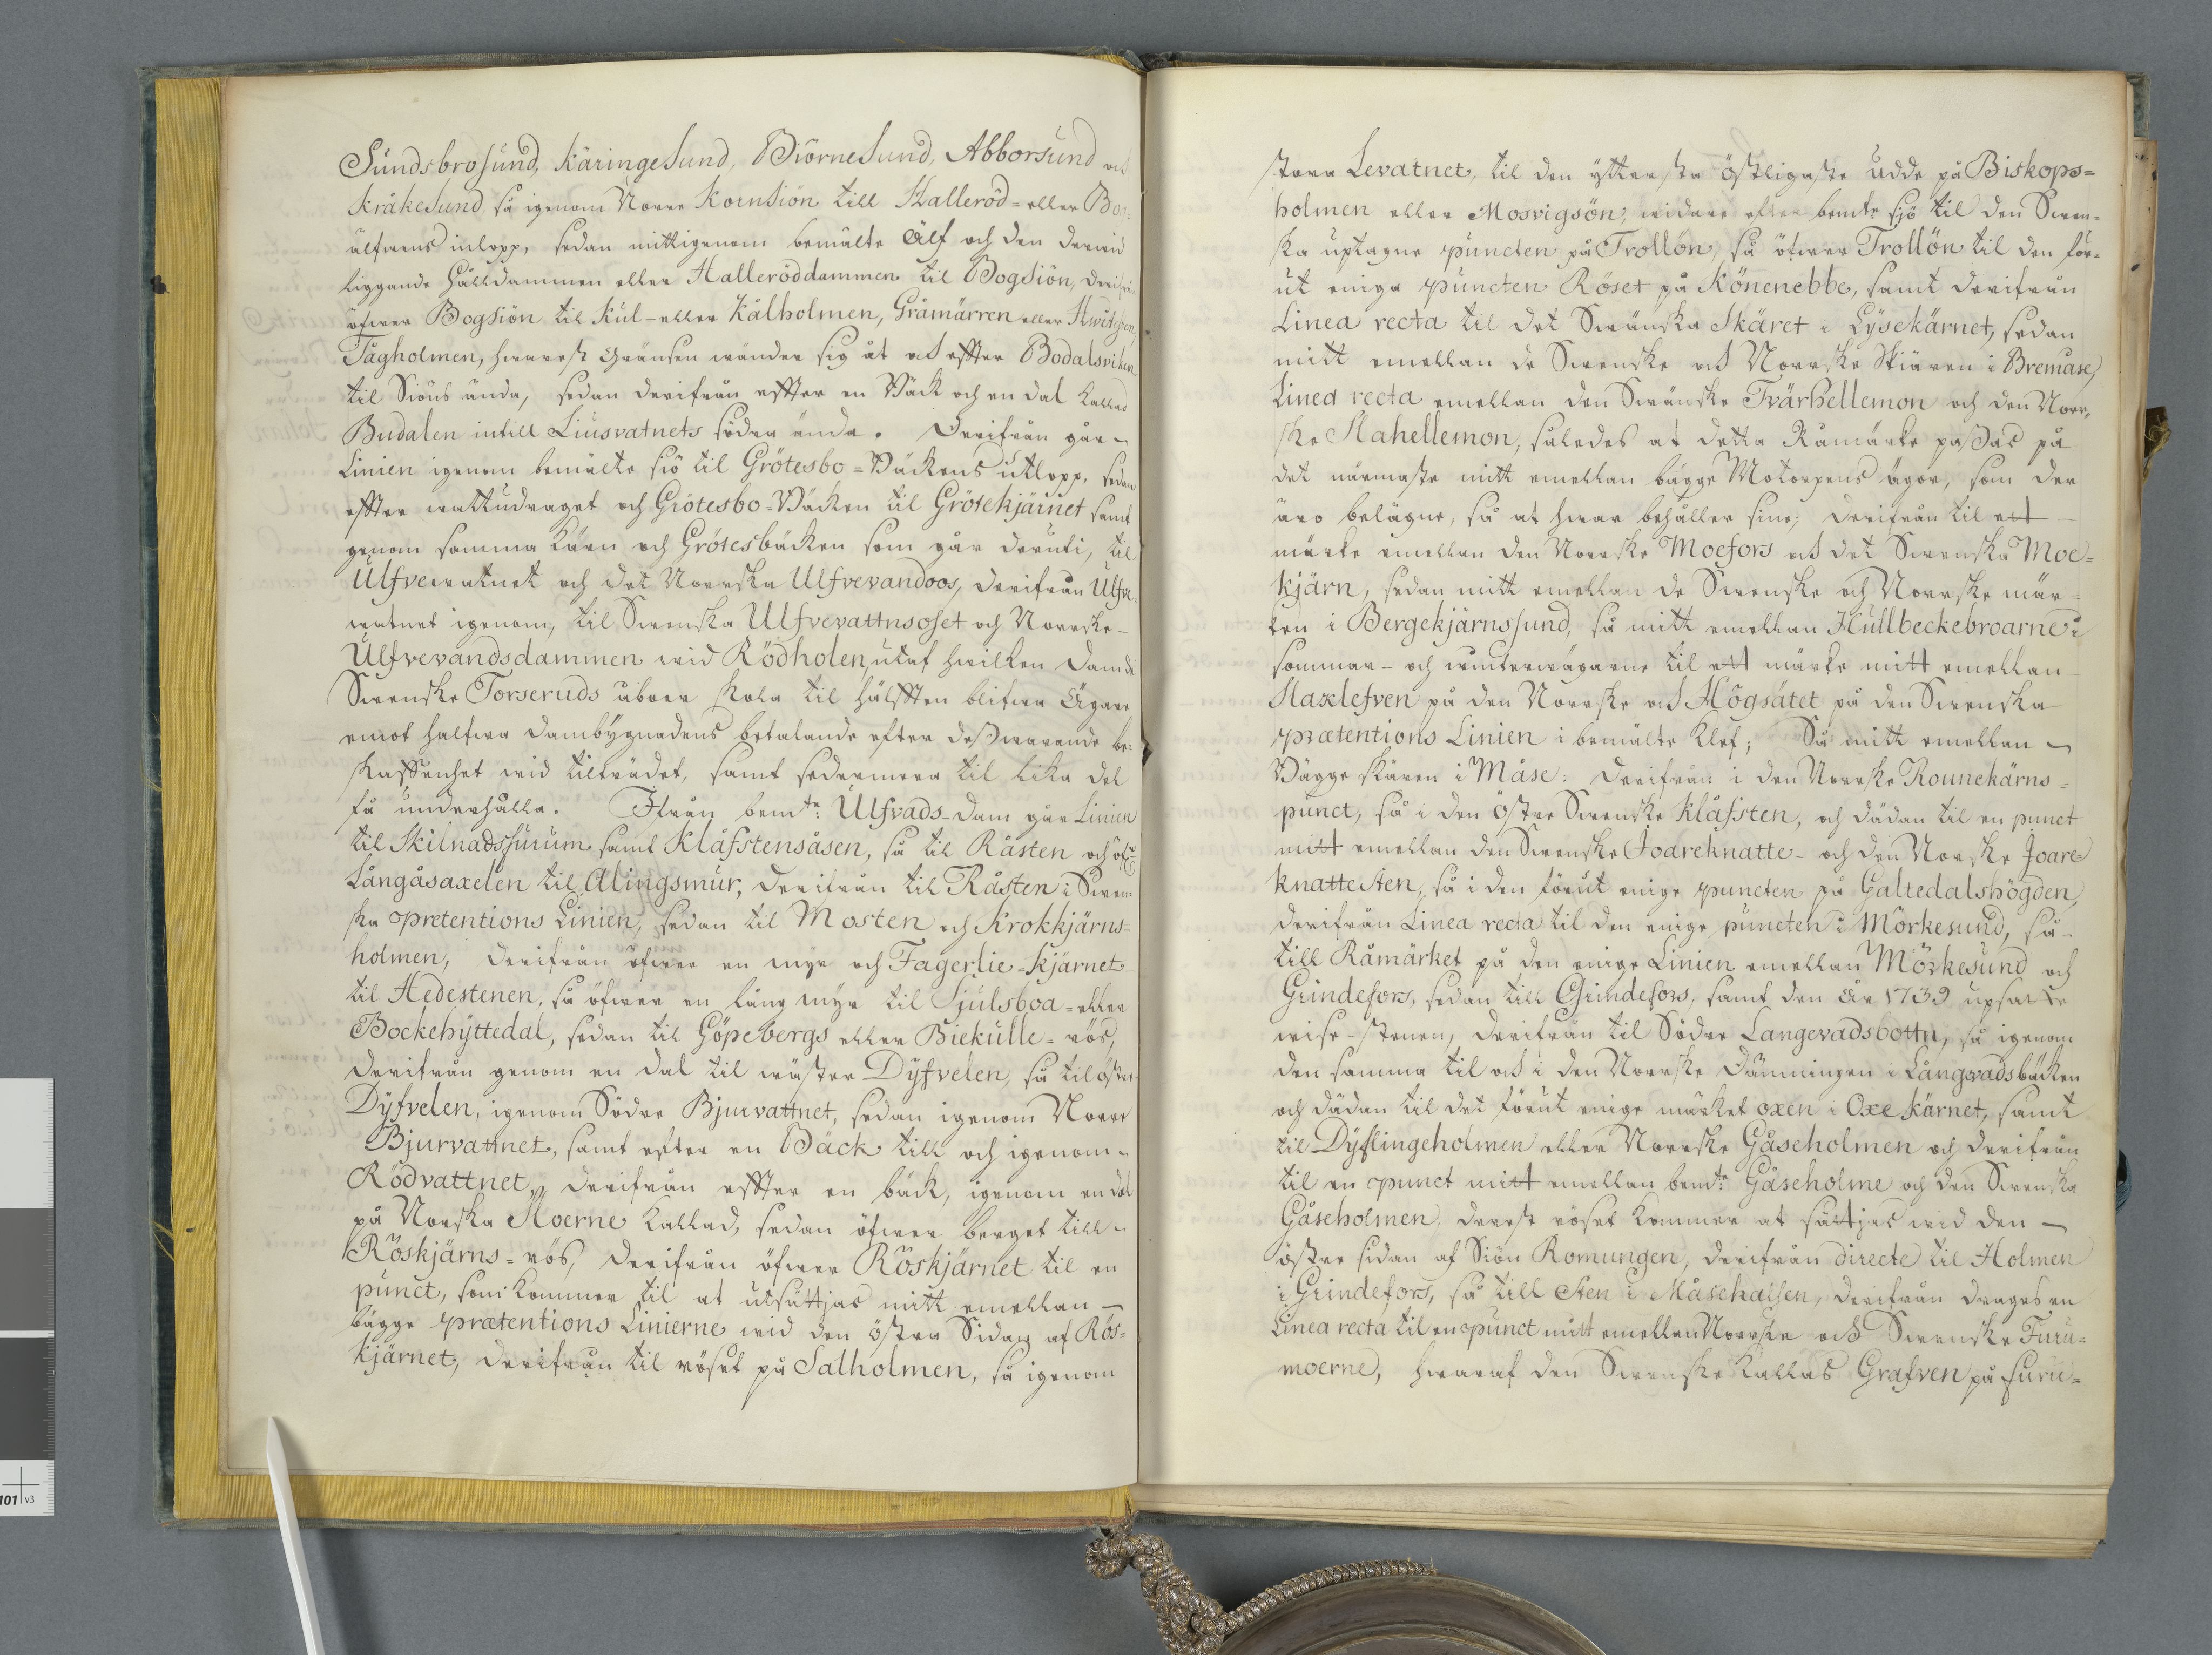 Sundsbrosund, Käringesund, Biörnesund, Abborsund och
Kråkesund så igenom Norre Kornsiön till Halleröd- eller Bo-
älfwens inlopp, sedan mittigenom bemälte Älf och den derwid
liggande Hålldammen eller Halleröddammen til Bogsiön, derifrån
öfwer Bogsiön til Kul- eller Kålholmen, Gråmärren eller Hwitgren
Tågholmen, hwarest Gränsen wänder sig åt och effter Bodalsviken
til Siöns ända, sedan derifrån effter en Bäck och en dal kallad
Budalen intill Liusvatnets södra ända. Derifrån går
Linien igenom bemälte siö til Grötesbo-Bäckens utlopp, sedan
effter wattudraget och Grötesbo-Bäcken til Grötekjärnet samt
genom samma Kärn och Grötesbäcken som går deruti, til
Ulfvewatnet och det Norrska Ulfvevandoos, derifrån Ulfve-
watnet igenom, til Swenska Ulfvevattnsoset och Norrske
Ulfvevandsdammen wid Rödholen, utaf hwilken Dam de
Swenske Torseruds åboer skola til hälfften blifwa Ägare
emot halfwa dambygnadens betalande efter deß warande be-
skaffenhet wid tilträdet, samt sedermera til lika del
få underhålla. Ifrån bemte Ulfvads-Dam går Linien
til Skilnadsfurum samt Klåfstensåsen, så til Råsten och öfwer
Långåsaxelen til Alingsmur, derifrån til Råsten i Swen-
ska pretentions Linien, sedan til Mosten och Krokkjärns-
holmen, derifrån öfwer en myr och Fagerlie-Kjärnet
til Hedestenen, så öfwer en lång myr til Sjulsboa- eller
Bockehyttedal, sedan til Göpebergs eller Biekulle-rös,
derifrån genom en dal til wäster Dyfvelen, så til öster
Dyfvelen, igenom Södre Bjurvattnet, sedan igenom Norre
Bjurvattnet, samt efter en Bäck till och igenom
Rödvattnet, derifrån effter en bäck, igenom en dal
på Norska Moerne kallad, sedan öfwer berget till
Röskjärns-rös, derifrån öfwer Röskjärnet til en
punct, som kommer til at utsättjas mitt emellan
bägge prætentions Linierne wid den östra Sidan af Rös-
kjärnet, derifrån til röset på Salholmen, så igenom
stora Levatnet, til den ytterste östligaste udde på Biskops-
holmen eller Mosvigsön, widare efter bemte sjö til den Swen-
ska uptagne puncten på Trollön, så öfwer Trollön til den för-
ut eniga puncten Röset på Könenebbe, samt derifrån
Linea recta til det Swänska Skäret i Lysekärnet, sedan
mitt emellan de Swenske och Norrske Skiären i Bremåse,
Linea recta emellan den Swänske Tvärhellemon och den Norr-
ske Hahellemon, således at detta Råmärke paßas på
det närmaste mitt emellan bägge Motorpens ägor, som der
äro belägne, så at hwar behåller sine; derifrån til ett
märke emellan den Norrske Moefors och det Swenska Moe-
kjärn, sedan mitt emellan de Swenske och Norrske mär-
ken i Bergekjärnssund, så mitt emellan Hullbeckebroarne i
sommar- och winterwägarne til ett märke mitt emellan
Haxlefven på den Norrske och Högsätet på den Swenska
prætentions Linien i bemälte Klef; Så mitt emellan
Bägge skären i Måse: derifrån i den Norrske Rounekärns-
punct, så i den Östre Swenske Klåfsten, och dädan til en punct
mitt emellan den Swenske Joareknatte- och den Norske Joare-
knattesten, så i den förut enige puncten på Galtedalshögden,
derifrån Linea recta til den enige puncten i Mörkesund, så
till Råmärket på den enige Linien emellan Mörkesund och
Grindefors, sedan till Grindefors, samt den år 1739 upsatte
wise-stenen, derifrån til Södre Langevadsbottn, så igenom
den samma til och i den Norrske Dämningen i Långevadsbäcken
och dädan til det förut enige märket oxen i Oxekärnet, samt
til Dyflingeholmen eller Norrske Gåseholmen och derifrån
til en punct mitt emellan bemte Gåseholme och den Swenska
Gåseholmen, derest röset kommer at sättjas wid den
östre sidan af Siön Romungen, derifrån directe til Holmen
i Grindefors, så till Sten i Måsekalsen, derifrån drages en
Linea recta til en punct mitt emellan Norrske och Swenske Furu-
moerne, hwaraf den Swenske kallas Grafven på Furu-